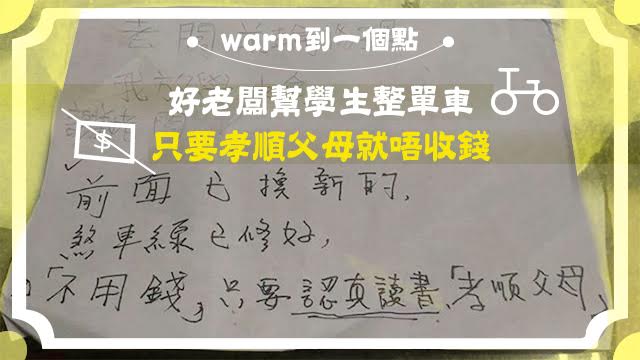 warm到一個點
好老闆幫學生整單車
$
只要孝順父母就唔收錢
前面已換新的,
煞車線已修好,
「不用錢」只要認真讀書「孝順父母」